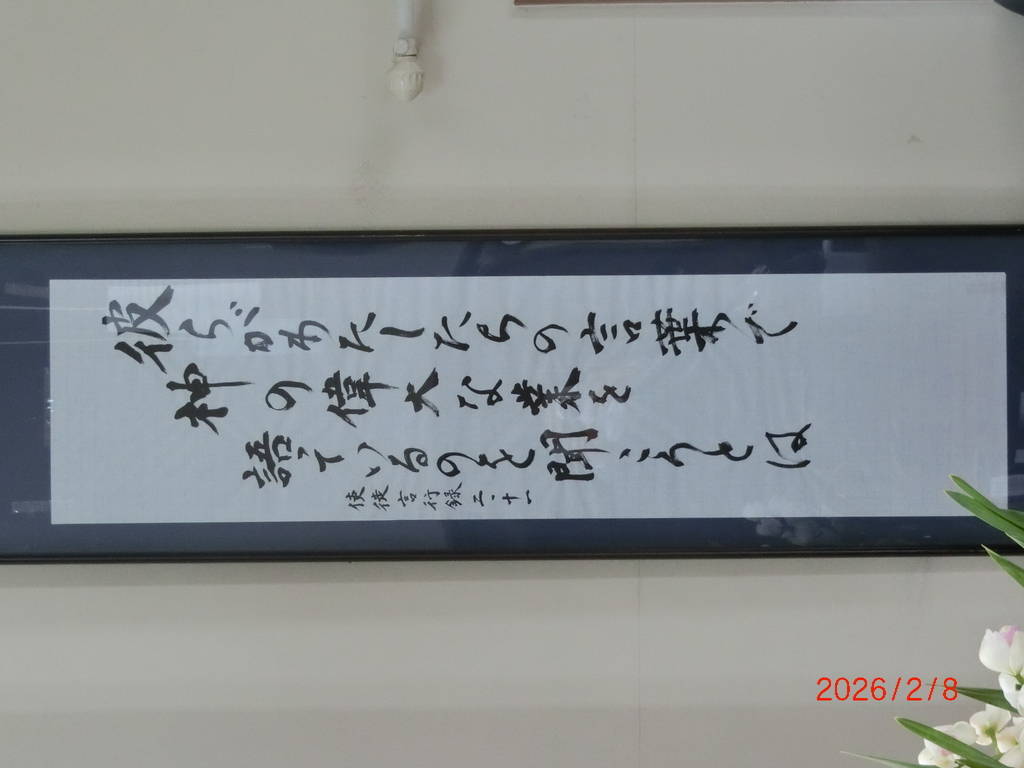 彼らがわたしたちの言葉で
神の偉大な業を
語っているのを聞こうとは
使徒言行録二・十一
2026/2/8